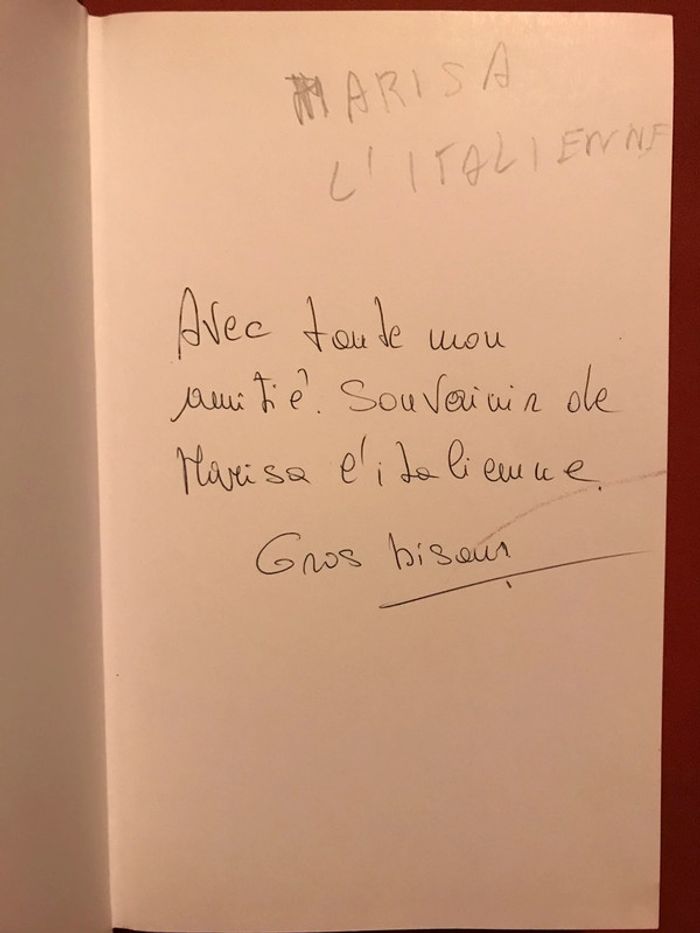 MARISA
L'ITALIENNE
Avec toute mon
amitié. Souvenir de
Marisa l'italienne.
Gros bisous